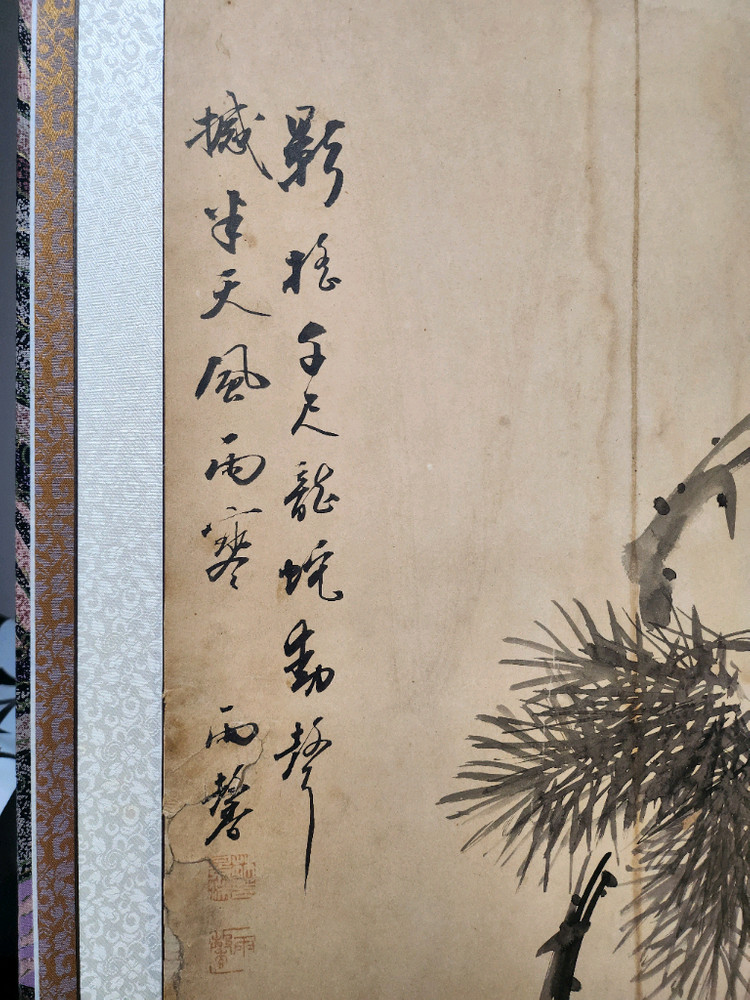 影搖千尺龍蛇動聲
撼半天風雨寒
雨馨